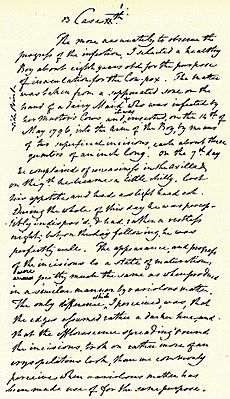 Case
The more accurately to observe the
progress of the infection, I selected a healthy
Boy about eight years old for the purpose
of inoculation for the Cow pox. The matter
was taken from a suppurated sore on the
hand of a dairy Maid who was infected by
her Master's Cows and inserted on the 14th of
May 1796, into the arm of the Boy by means
of two superficial incisions, each about three
quarters of an inch long. on the 7th day
he complained of uneasiness in the axilla &
on the 9th he became a little chilly, lost
his appetite and had a slight head ach.
During the whole of this day he was
indisposed & had rather a restless
night; but, on the day following he was
perfectly well. The appearance and progress
of the incisions to a state of maturation,
were pretty much the same as when produced
in a similar manner by variolous matter.
The only difference which I perceived was that
the edges assumed rather a darker hue, and
that the efflorescence spreading round
the incisions, took on rather more of an
erysipelatous look, than we commonly
perceive when variolous matter has
been made use of for the same purpose.